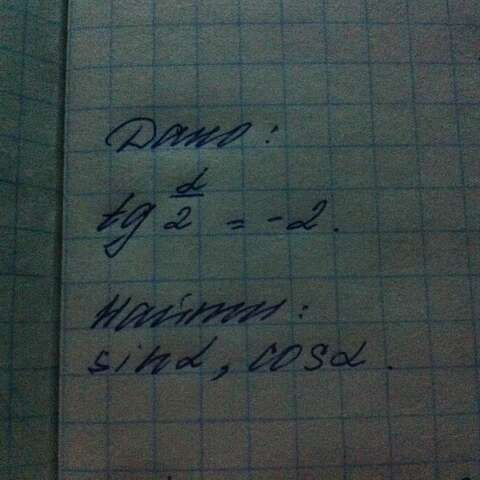 Дано:
tg α/2 = -2.
Найти:
sinα, cosα.